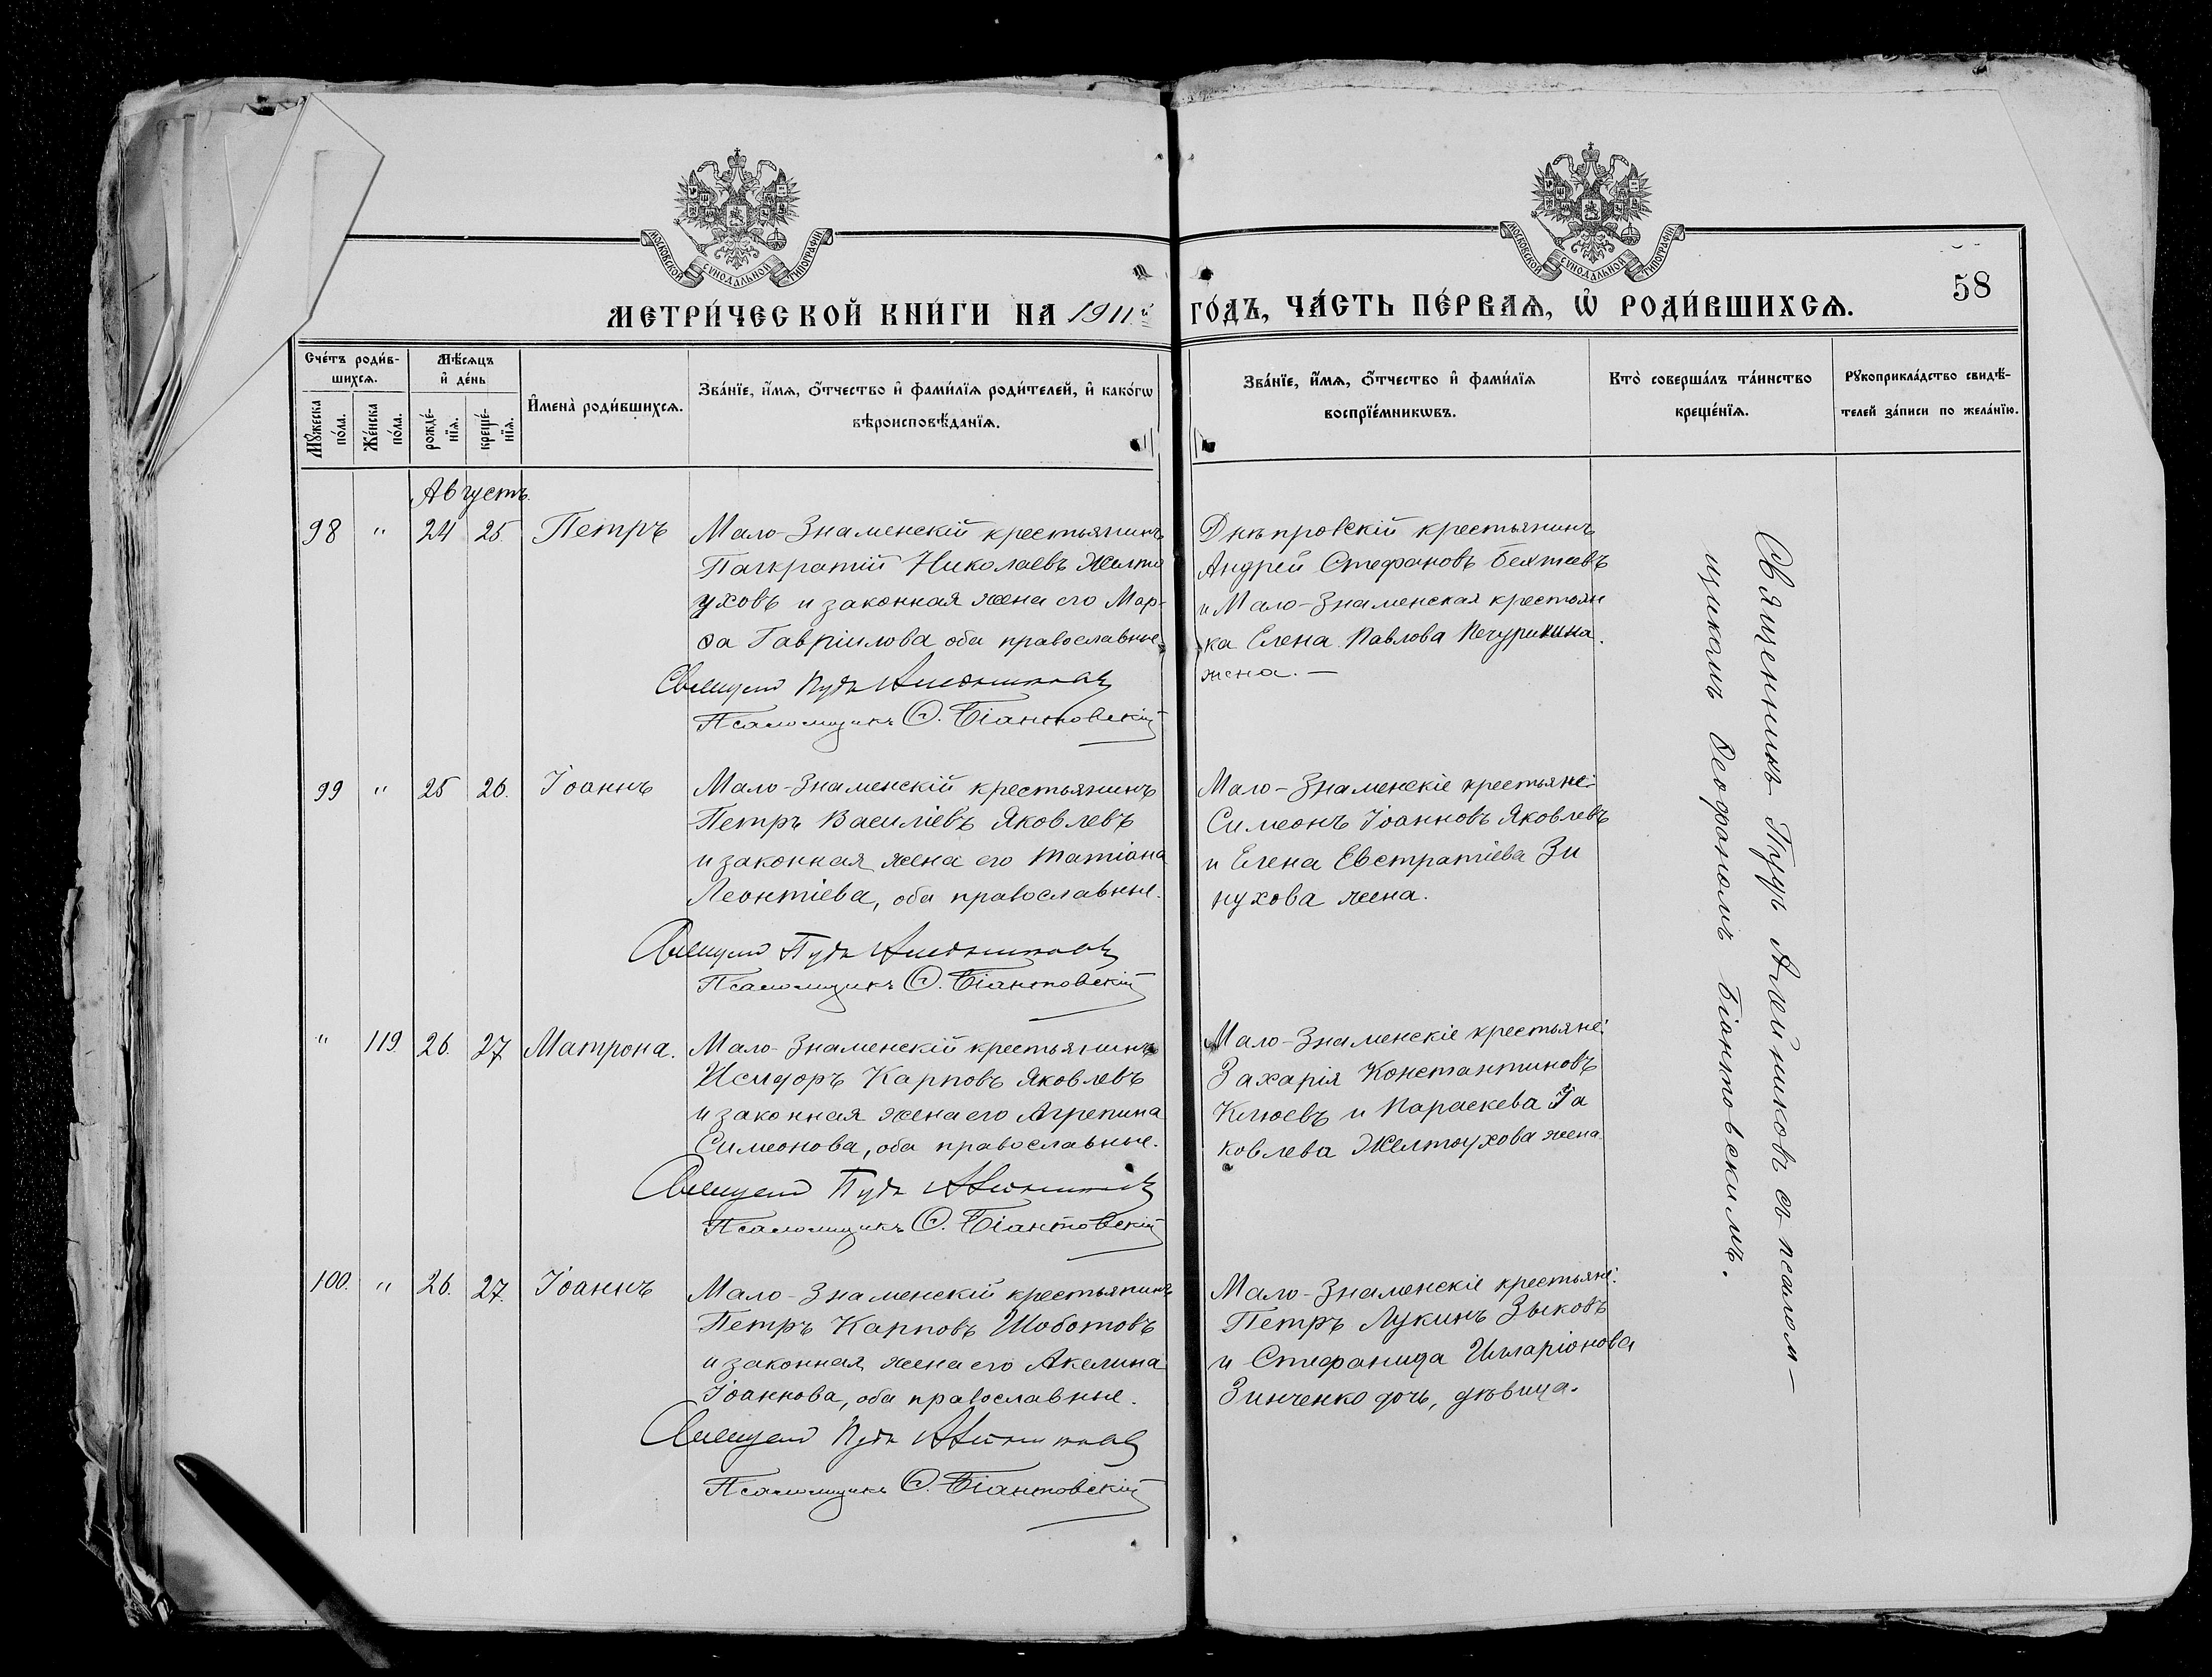 МОСКОВСКОЙ СУНОДАЛЬНОЙ ТИПОГРАФІИ
МОСКОВСКОЙ СУНОДАЛЬНОЙ ТИПОГРАФІИ
58
МЕТРИ́ЧЕСКОЙ КНИ́ГИ НА 1911й ГО́ДЪ, ЧА́СТЬ ПЕ́РВАѦ, Ѡ҆ РОДИ́ВШИХСѦ.
Сче́тъ роди́в-
шихсѧ.
Мꙋ́жеска
по́ла.
Же́нска
по́ла.
Мѣ́сѧцъ
и҆ де́нь
рожде́-
нїѧ.
креще́-
нїѧ.
И҆мена̀ роди́вшихсѧ.
Зва́нїе, и҆́мѧ, ѻ҆́тчество и҆ фами́лїѧ роди́телей, и҆ како́гѡ
вѣроисповѣ́данїѧ.
Зва́нїе, и҆́мѧ, ѻ҆́тчество и҆ фами́лїѧ
воспрїе́мникѡвъ.
Кто̀ соверша́лъ та́инство
креще́нїѧ.
Рꙋкоприкла́дство свидѣ́-
телей за́писи по жела́нїю.
Августъ.
98 " 24 25. Петръ
Мало-Знаменскій крестьянинъ
Панкратій Николаевъ Желто
уховъ и законная жена его Мар-
ѳа Гавріилова оба православные.
Священ Пудъ Алейниковъ
Псаломщикъ Ѳ. Біантовскій
Днѣпровскій крестьянинъ
Андрей Стефановъ Бехтеевъ
и Мало-Знаменская крестьян
ка Елена Павлова Печуркина
жена. —
99 " 25 26. Іоаннъ
Мало-Знаменскій крестьянинъ
Петръ Василіевъ Яковлевъ
и законная жена его Татіана
Леонтіева, оба православные.
Священ Пудъ Алейниковъ
Псаломщикъ Ѳ. Біантовскій
Мало-Знаменскіе крестьяне:
Симеонъ Іоанновъ Яковлевъ
и Елена Евстратіева Зи
нухова жена.
" 119. 26. 27 Матрона.
Мало-Знаменскій крестьянинъ
Исидоръ Карповъ Яковлевъ
и законная жена его Агрепина
Симеонова, оба православные.
Священ Пудъ Алейниковъ
Псаломщикъ Ѳ. Біантовскій
Мало-Знаменскіе крестьяне:
Захарія Константиновъ
Клюевъ и Параскева Іа
ковлева Желтоухова жена.
100. " 26. 27. Іоаннъ
Мало-Знаменскій крестьянинъ
Петръ Карповъ Шоботовъ
и законная жена его Акелина
Іоаннова, оба православные.
Священ Пудъ Алейниковъ
Псаломщикъ Ѳ. Біантовскій
Мало-Знаменскіе крестьяне:
Петръ Лукинъ Зыковъ
и Стефанида Илларіонова
Зинченко дочь, дѣвица.
Священникъ Пудъ Алейниковъ съ псалом-
щикомъ Ѳеофаномъ Біантовскимъ.